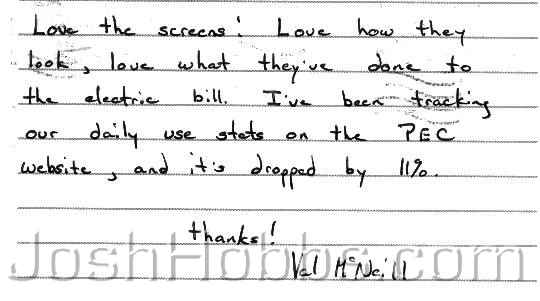 Love the screens! Love how they
look, love what they've done to
the electric bill. I've been tracking
our daily use stats on the PEC
website, and it's dropped by 11%.
thanks!
Val McNeill
JoshHobbs.com